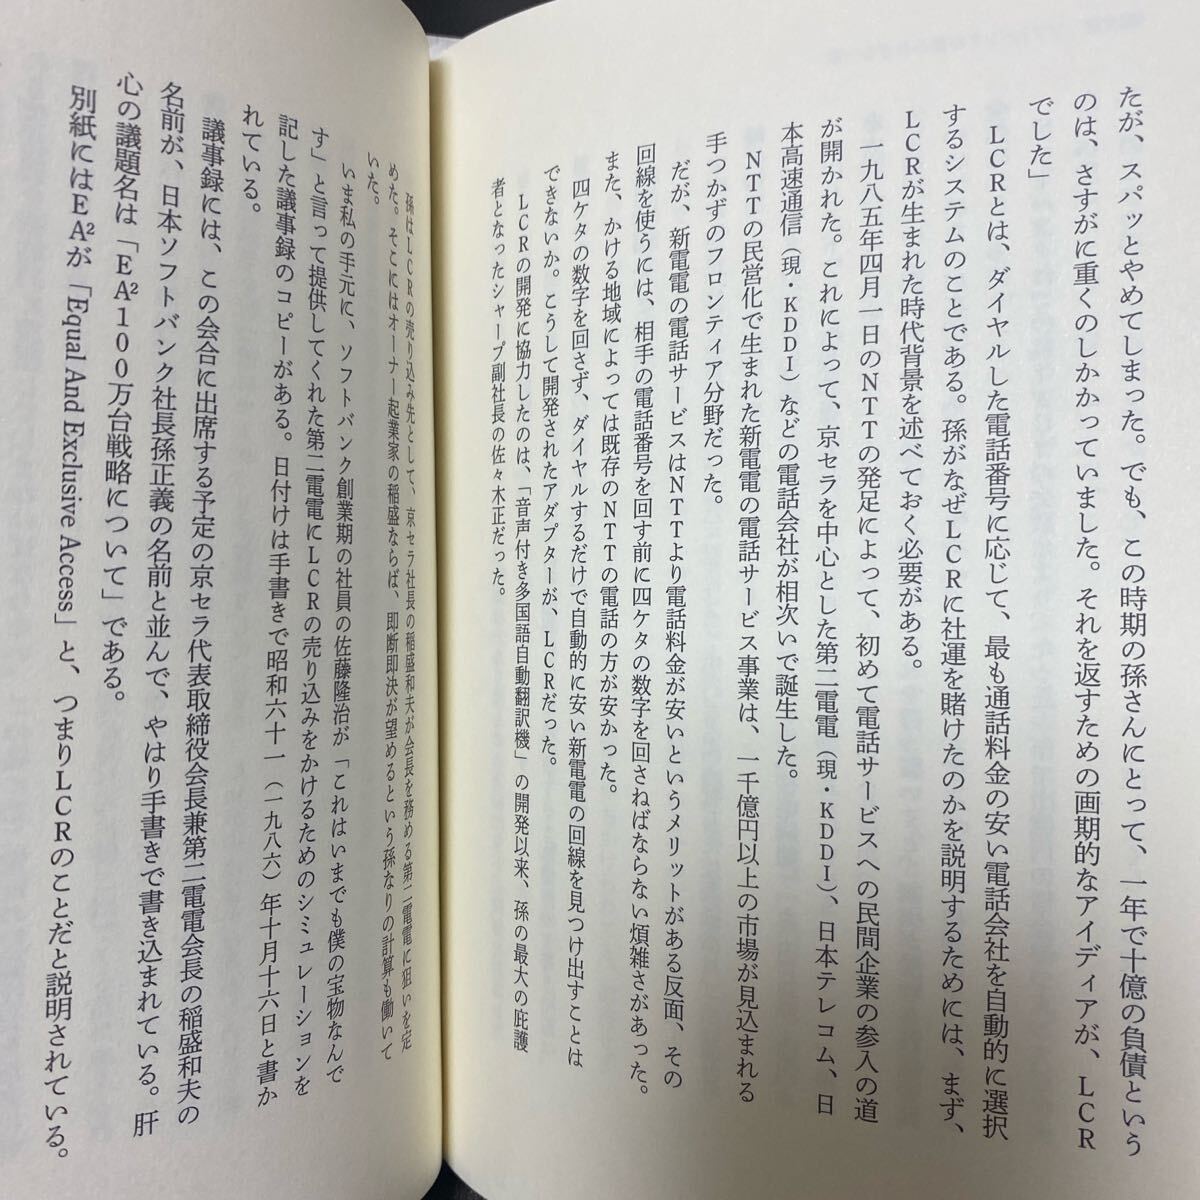 たが、スパッとやめてしまった。でも、この時期の孫さんにとって、一年で十億の負債という
のは、さすがに重くのしかかっていました。それを返すための画期的なアイディアが、LCR
でした」
LCRとは、ダイヤルした電話番号に応じて、最も通話料金の安い電話会社を自動的に選択
するシステムのことである。孫がなぜLCRに社運を賭けたのかを説明するためには、まず、
LCRが生まれた時代背景を述べておく必要がある。
一九八五年四月一日のNTTの発足によって、初めて電話サービスへの民間企業の参入の道
が開かれた。これによって、京セラを中心とした第二電電（現・KDDI）、日本テレコム、日
本高速通信（現・KDDI）などの電話会社が相次いで誕生した。
NTTの民営化で生まれた新電電の電話サービス事業は、一千億円以上の市場が見込まれる
手つかずのフロンティア分野だった。
だが、新電電の電話サービスはNTTより電話料金が安いというメリットがある反面、その
回線を使うには、相手の電話番号を回す前に四ケタの数字を回さねばならない煩雑さがあった。
また、かける地域によっては既存のNTTの電話の方が安かった。
四ケタの数字を回さず、ダイヤルするだけで自動的に安い新電電の回線を見つけ出すことは
できないか。こうして開発されたアダプターが、LCRだった。
LCRの開発に協力したのは、「音声付き多国語自動翻訳機」の開発以来、孫の最大の庇護
者となったシャープ副社長の佐々木正だった。
孫はLCRの売り込み先として、京セラ社長の稲盛和夫が会長を務める第二電電に狙いを定
めた。そこにはオーナー起業家の稲盛ならば、即断即決が望めるという孫なりの計算も働いて
いた。
いま私の手元に、ソフトバンク創業期の社員の佐藤隆治が「これはいまでも僕の宝物なんで
す」と言って提供してくれた第二電電にLCRの売り込みをかけるためのシミュレーションを
記した議事録のコピーがある。日付けは手書きで昭和六十一（一九八六）年十月十六日と書か
れている。
議事録には、この会合に出席する予定の京セラ代表取締役会長兼第二電電会長の稲盛和夫の
名前が、日本ソフトバンク社長孫正義の名前と並んで、やはり手書きで書き込まれている。肝
心の議題名は「EA²100万台戦略について」である。
別紙にはEA²が「Equal And Exclusive Access」と、つまりLCRのことだと説明されている。